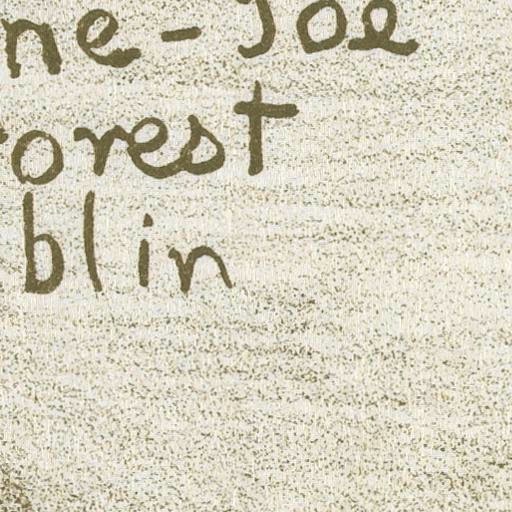 ne-Joe
orest
blin